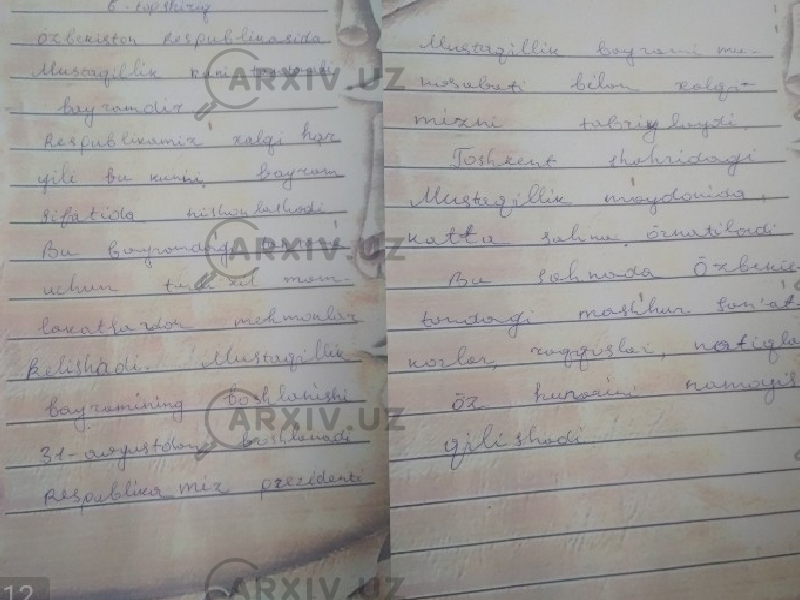 6-topshiriq
Özbekiston Respublikasida
Mustaqillik kuni
bayramdir
Respublikamiz xalqi har
yili bu kunni bayram
sifatida nishonlashadi
Bu bayramdagi
uchun turli xil mam-
lakatlardan mehmonlar
kelishadi. Mustaqillik
bayramining boshlanishi
31-avgustdan boshlanadi
Respublikamiz prezidenti
12
Mustaqillik bayrami mu-
nosabati bilan xalqi-
mizni tabriklaydi.
Toshkent shahridagi
Mustaqillik maydonida,
katta sahna örnatiladi
Bu sahnada Özbekis-
tondagi mashhur san'at-
korlar, raqqoslar, notiqla
öz hunarini namoyis
qilishadi
ARXIV.UZ
ARXIV.UZ
ARXIV.UZ
ARXIV.UZ